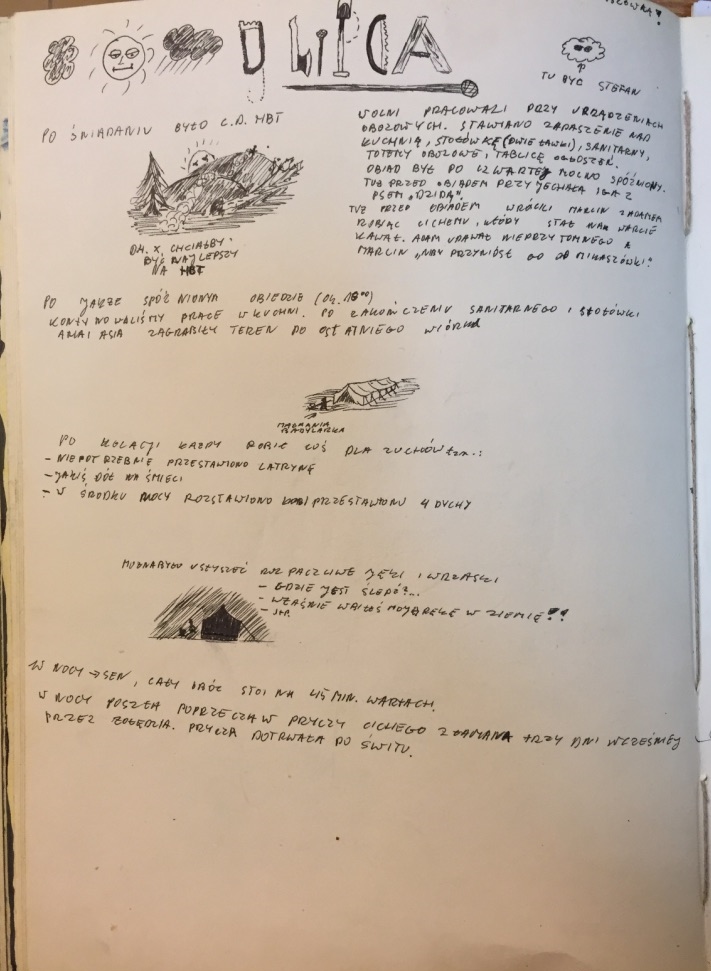 9 LIPCA
TU BYŁ STEFAN
PO ŚNIADANIU BYŁO C.D. HBT
DH. X. CHCIAŁBY
BYĆ NAJLEPSZY
NA HBT
WOLNI PRACOWALI PRZY URZĄDZENIACH
OBOZOWYCH. STAWIANO ZADASZENIE NAD
KUCHNIĄ, STOŁÓWKĘ (DWIE ŁAWKI), SANITARNY,
TOTEMY OBOZOWE, TABLICĘ OGŁOSZEŃ.
OBIAD BYŁ PO CZWARTEJ MOCNO SPÓŹNIONY.
TUŻ PRZED OBIADEM PRZYJECHAŁA IGA Z
PSEM „DZIDĄ".
TUŻ PRZED OBIADEM WRÓCIŁ MARCIN Z ADAMEM
ROBIĄC CICHEMU, KTÓRY STAŁ NA WARCIE
KAWAŁ. ADAM UDAWAŁ NIEPRZYTOMNEGO A
MARCIN „NIBY PRZYNIÓSŁ GO OD MIKASZÓWKI".
PO JAKŻE SPÓŹNIONYM OBIEDZIE (OK. 16⁰⁰)
KONTYNUOWALIŚMY PRACE W KUCHNI. PO ZAKOŃCZENIU SANITARNEGO I STOŁÓWKI
ANIA I ASIA ZAGRABIŁY TEREN DO OSTATNIEGO WIÓRKA
PO KOLACJI KAŻDY ROBIŁ COŚ DLA ZUCHÓW tzn.:
- NIEPOTRZEBNIE PRZESTAWIONO LATRYNĘ
- JAKIŚ DÓŁ NA ŚMIECI
- W ŚRODKU NOCY ROZSTAWIONO PRZESTAWIONO 4 DYCHY
MOŻNA BYŁO USŁYSZEĆ ROZPACZLIWE JĘKI I WRZASKI
- GDZIE JEST ŚLEDŹ?...
- WŁAŚNIE WBIŁEŚ MOJĄ RĘKĘ W ZIEMIĘ!!
- ITP.
W NOCY → SEN, CAŁY OBÓZ STOI NA 45 MIN. WARTACH.
W NOCY POSZŁA POPRZECZKA W PRYCZY CICHEGO ZŁAMANA TRZY DNI WCZEŚNIEJ
PRZEZ ŻOŁĘDZIA. PRYCZA DOTRWAŁA DO ŚWITU.